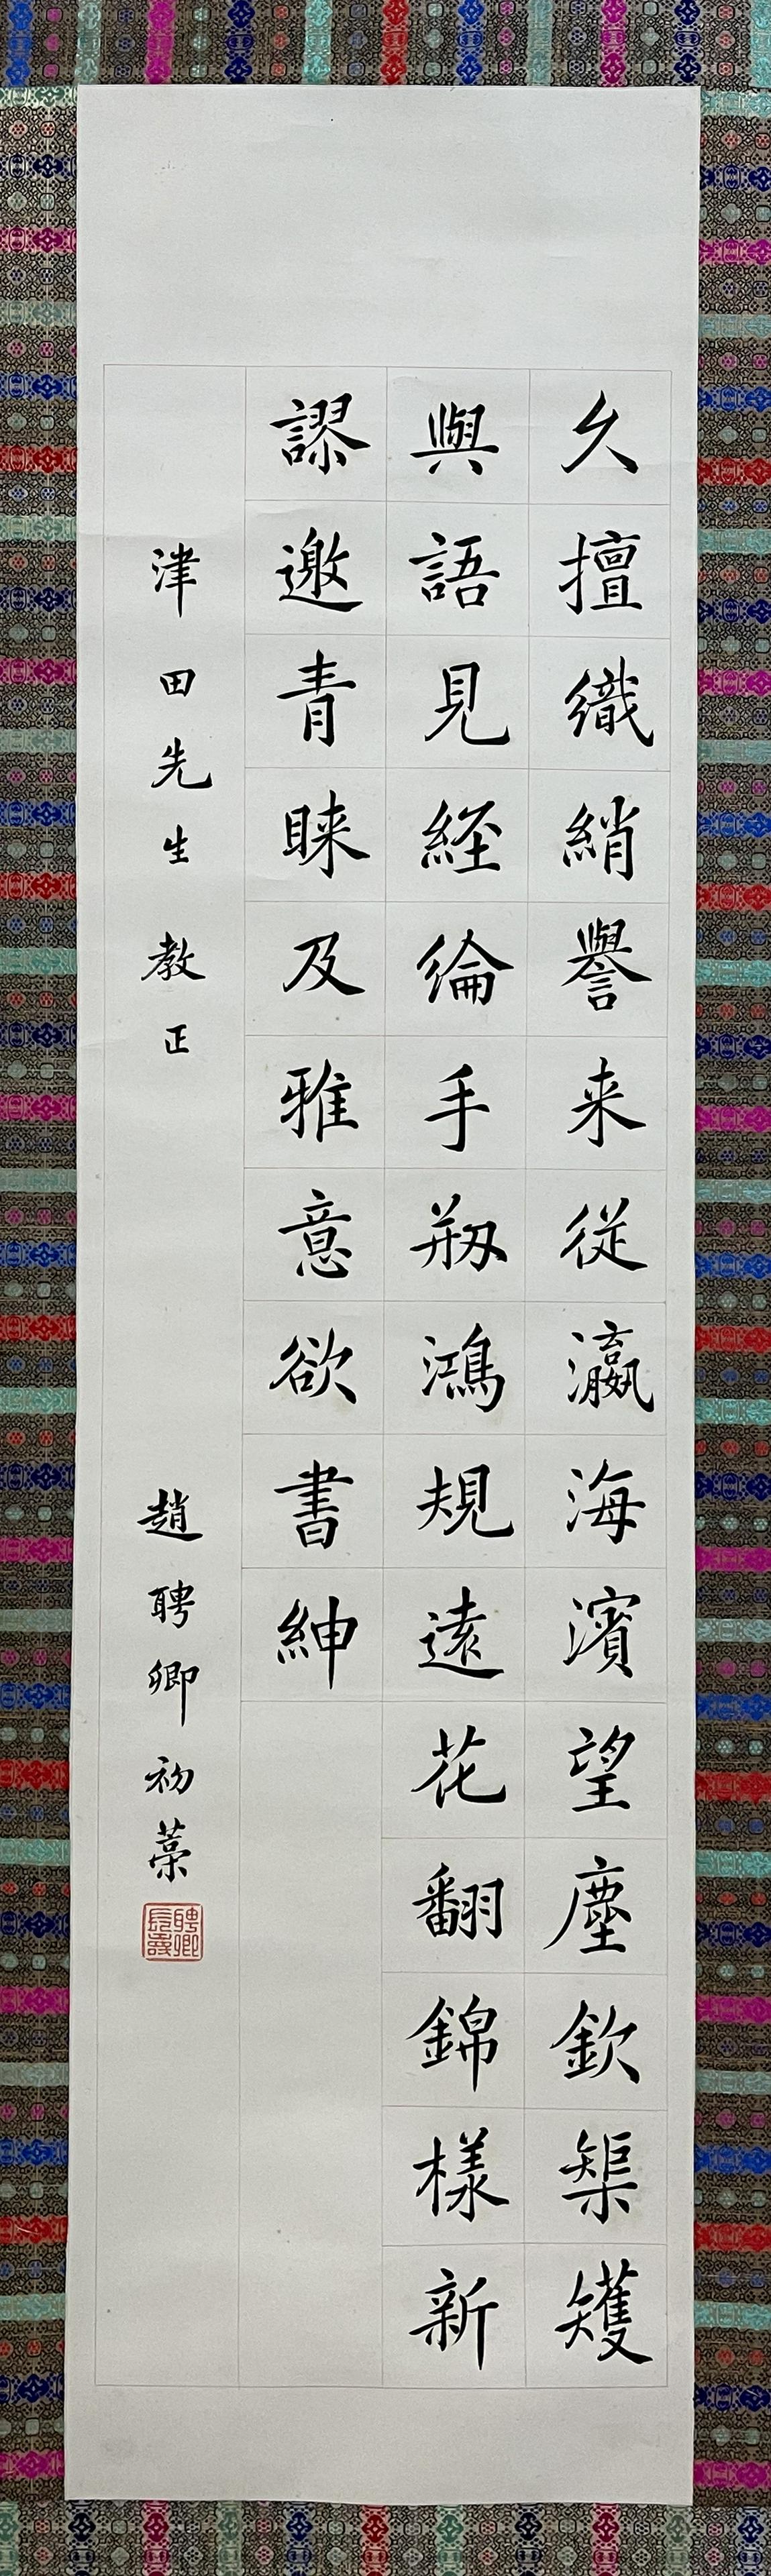 久擅織綃譽来從瀛海濱望塵欽榘矱
與語見経綸手剏鴻規遠花翻錦樣新
謬邀青睞及雅意欲書紳
津田先生教正
趙聘卿初藁
聘卿長壽